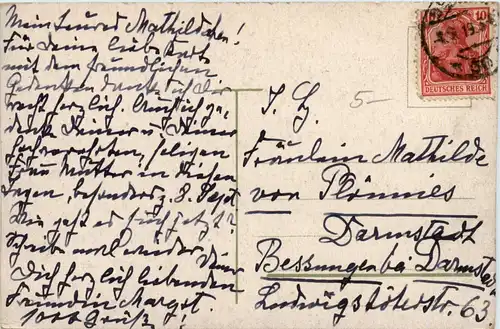 Mein teures Mathildchen!
Für Deine liebe Karte
mit dem freundlichen
Gedenken danke ich Dir
recht herzlich. Auch ich ge-
denk Deiner u. Deiner
hochverehrten, seligen
Frau Mutter in diesen
Tagen, besonders z. 8. Sept.
Wie geht es Euch jetzt?
Schreibe mal wieder Deiner
Dich herzlich liebenden
Freundin Margot.
1000 Grüße!
5-
10
DEUTSCHES REICH
I. H.
Fräulein Mathilde
von Plönnies
Darmstadt
Bessungen bei Darmstadt
Ludwigshöherstr. 63